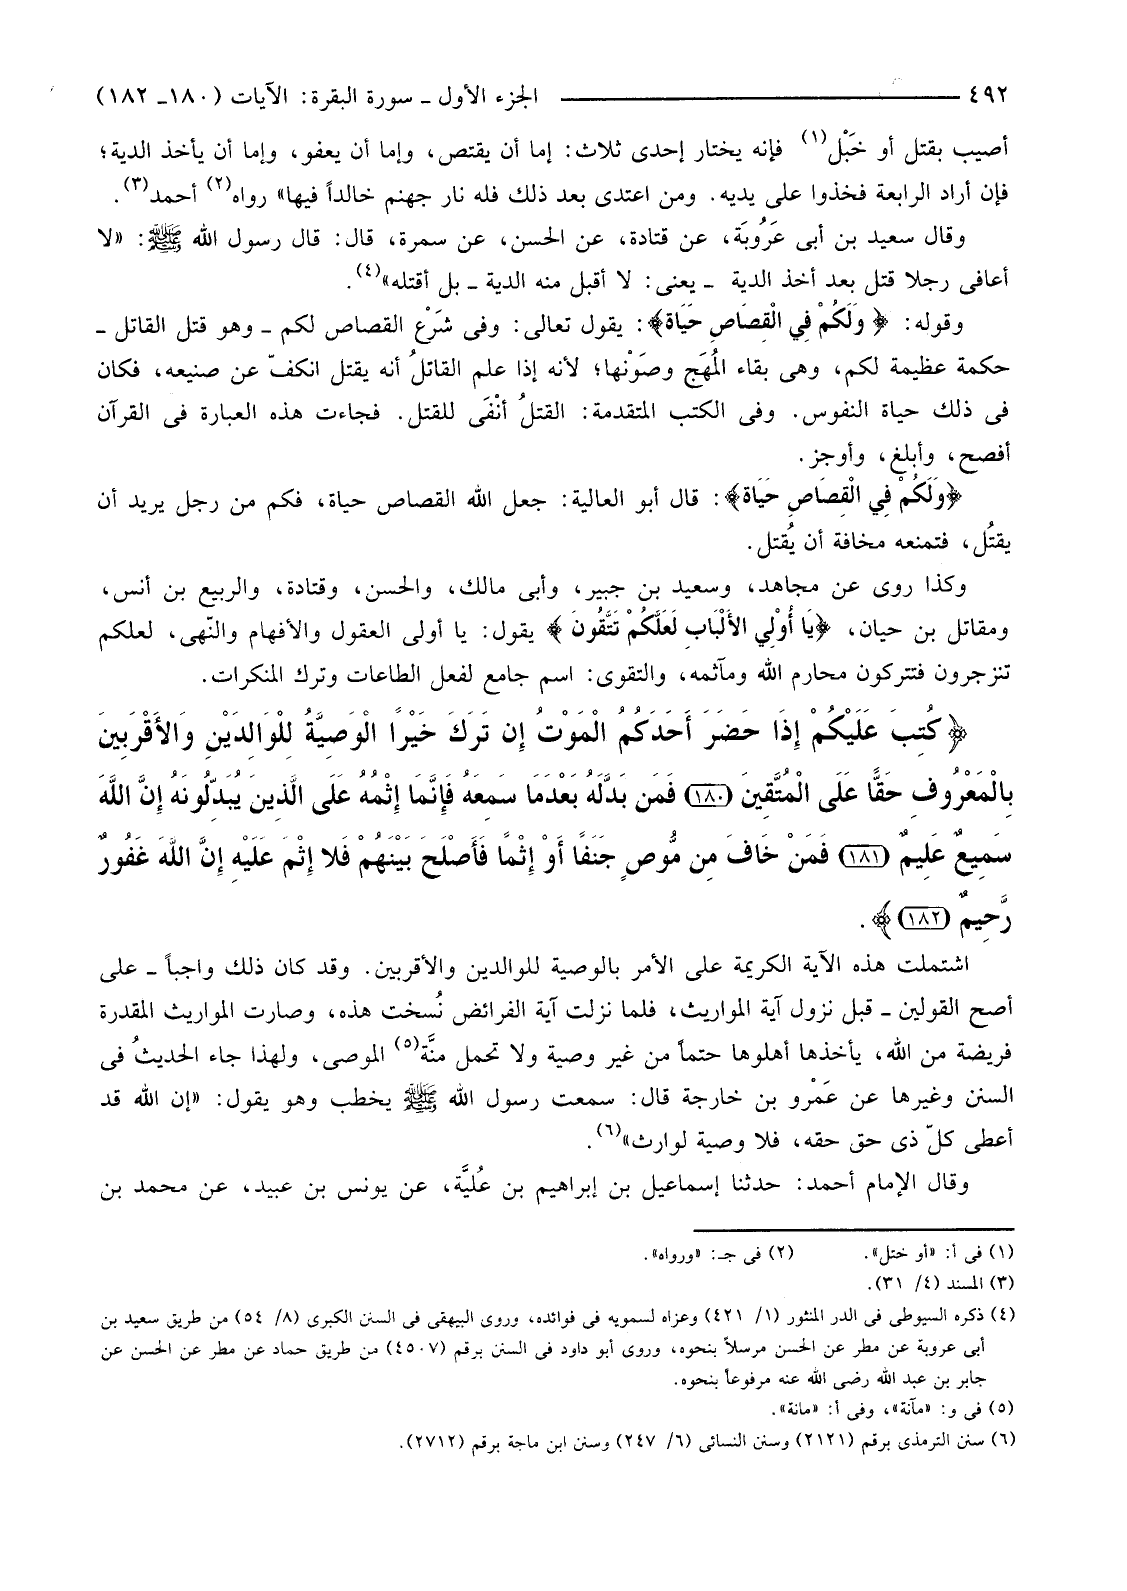 ٤٩٢ ــــــــــــــــــــ الجزء الأول ـ سورة البقرة: الآيات (١٨٠ـ ١٨٢)
أصيب بقتل أو خَبْل(١) فإنه يختار إحدى ثلاث: إما أن يقتص، وإما أن يعفو، وإما أن يأخذ الدية؛
فإن أراد الرابعة فخذوا على يديه. ومن اعتدى بعد ذلك فله نار جهنم خالداً فيها» رواه(٢) أحمد(٣).
وقال سعيد بن أبى عَرُوبَة، عن قتادة، عن الحسن، عن سمرة، قال: قال رسول الله ﷺ: «لا
أعافى رجلا قتل بعد أخذ الدية ـ يعنى: لا أقبل منه الدية ـ بل أقتله»(٤).
وقوله: ﴿ وَلَكُمْ فِي الْقِصَاصِ حَيَاة﴾: يقول تعالى: وفى شَرْع القصاص لكم ـ وهو قتل القاتل ـ
حكمة عظيمة لكم، وهى بقاء المُهَج وصَوْنها؛ لأنه إذا علم القاتلُ أنه يقتل انكفّ عن صنيعه، فكان
فى ذلك حياة النفوس. وفى الكتب المتقدمة: القتلُ أنْفَى للقتل. فجاءت هذه العبارة فى القرآن
أفصح، وأبلغ، وأوجز.
﴿وَلَكُمْ فِي الْقِصَاصِ حَيَاة﴾: قال أبو العالية: جعل الله القصاص حياة، فكم من رجل يريد أن
يقتُل، فتمنعه مخافة أن يُقتل.
وكذا روى عن مجاهد، وسعيد بن جبير، وأبى مالك، والحسن، وقتادة، والربيع بن أنس،
ومقاتل بن حيان، ﴿يَا أُوْلِي الأَلْبَابِ لَعَلَّكُمْ تَتَّقُونَ ﴾ يقول: يا أولى العقول والأفهام والنّهى، لعلكم
تنزجرون فتتركون محارم الله ومآثمه، والتقوى: اسم جامع لفعل الطاعات وترك المنكرات.
﴿ كُتِبَ عَلَيْكُمْ إِذَا حَضَرَ أَحَدَكُمُ الْمَوْتُ إِن تَرَكَ خَيْرًا الْوَصِيَّةُ لِلْوَالِدَيْنِ وَالأَقْرَبِينَ
بِالْمَعْرُوفِ حَقًّا عَلَى الْمُتَّقِينَ (١٨٠) فَمَن بَدَّلَهُ بَعْدَمَا سَمِعَهُ فَإِنَّمَا إِثْمُهُ عَلَى الَّذِينَ يُبَدِّلُونَهُ إِنَّ اللَّهَ
سَمِيعٌ عَلِيمٌ (١٨١) فَمَنْ خَافَ مِن مُّوصٍ جَنَفًا أَوْ إِثْمًا فَأَصْلَحَ بَيْنَهُمْ فَلا إِثْمَ عَلَيْهِ إِنَّ اللَّهَ غَفُورٌ
رَّحِيمٌ (١٨٢)﴾ .
اشتملت هذه الآية الكريمة على الأمر بالوصية للوالدين والأقربين. وقد كان ذلك واجباً ـ على
أصح القولين ـ قبل نزول آية المواريث، فلما نزلت آية الفرائض نُسخت هذه، وصارت المواريث المقدرة
فريضة من الله، يأخذها أهلوها حتماً من غير وصية ولا تحمل منَّة(٥) الموصى، ولهذا جاء الحديثُ فى
السنن وغيرها عن عَمْرو بن خارجة قال: سمعت رسول الله ﷺ يخطب وهو يقول: «إن الله قد
أعطى كلّ ذى حق حقه، فلا وصية لوارث»(٦).
وقال الإمام أحمد: حدثنا إسماعيل بن إبراهيم بن عُليَّة، عن يونس بن عبيد، عن محمد بن
(١) فى أ: «أو ختل». (٢) فى جـ: «ورواه».
(٣) المسند (٤/ ٣١).
(٤) ذكره السيوطى فى الدر المنثور (١/ ٤٢١) وعزاه لسمويه فى فوائده، وروى البيهقى فى السنن الكبرى (٨/ ٥٤) من طريق سعيد بن
أبى عروبة عن مطر عن الحسن مرسلاً بنحوه، وروى أبو داود فى السنن برقم (٤٥٠٧) من طريق حماد عن مطر عن الحسن عن
جابر بن عبد الله رضى الله عنه مرفوعاً بنحوه.
(٥) فى و: «مآنة»، وفى أ: «مانة».
(٦) سنن الترمذى برقم (٢١٢١) وسنن النسائى (٦/ ٢٤٧) وسنن ابن ماجة برقم (٢٧١٢).